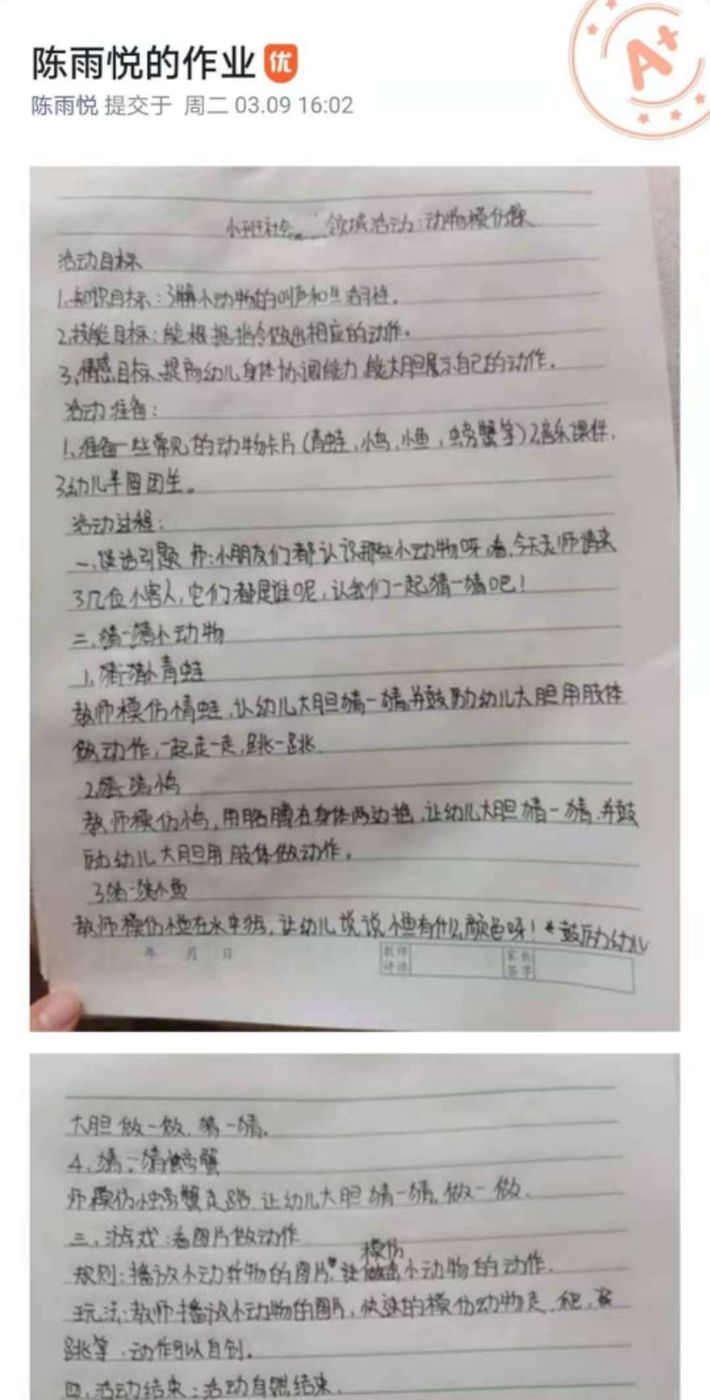 陈雨悦的作业 优
A+
陈雨悦 提交于 周二 03.09 16:02
小班社会 领域活动:动物模仿操
活动目标
1.知识目标:了解小动物的叫声和生活习性。
2.技能目标:能根据指令做出相应的动作。
3.情感目标.提高幼儿身体协调能力,能大胆展示自己的动作。
活动准备:
1.准备一些常见的动物卡片(青蛙,小鸟,小鱼,螃蟹等)2.音乐课件.
3.幼儿半圆围坐。
活动过程:
一.谈话引题 师:小朋友们都认识那些小动物呀,看,今天老师请来
了几位小客人,它们都是谁呢,让我们一起猜一猜吧!
二.猜一猜小动物
1.猜一猜小青蛙
教师模仿情蛙,让幼儿大胆猜一猜,并鼓励幼儿大胆用肢体
做动作,一起走一走,跳一跳.
2.猜一猜小鸟
教师模仿小鸟,用胳膊在身体两边,让幼儿大胆猜一猜,并鼓
励幼儿大胆用肢体做动作。
3.猜一猜小鱼
教师模仿小鱼在水中游,让幼儿说说小鱼有什么颜色呀!*鼓励幼儿
年 月 日 教师评语 家长签字
大胆做一做.猜一猜.
4.猜一猜螃蟹
师模仿小螃蟹走路,让幼儿大胆猜一猜,做一做.
三.游戏:看图片做动作
模仿
规则:播放小动物的图片,小动物的动作.
玩法:教师播放小动物的图片,快速的模仿动物走,爬,
跳等,动作可以自创.
四.活动结束:活动自然结束.